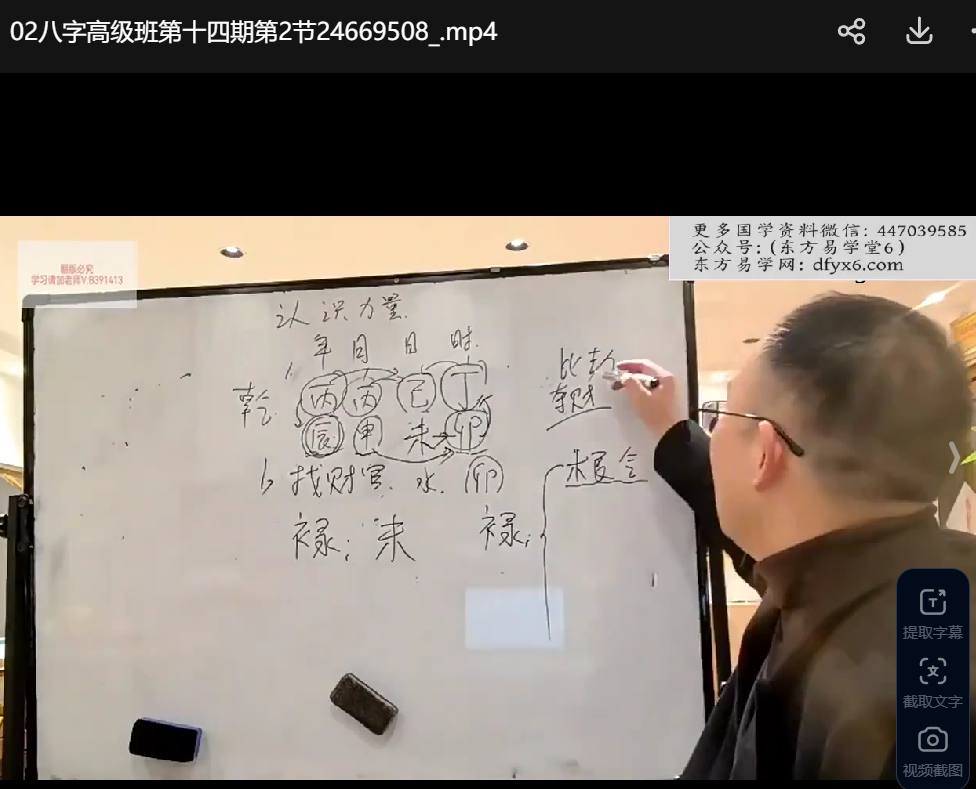 02八字高级班第十四期第2节24669508_.mp4
更多国学资料微信：447039585
公众号：(东方易学堂6)
东方易学网：dfyx6.com
翻版必究
学习请加老师V:8391413
认识力量
年 月 日 时
乾 丙 丙 己 丁
辰 申 未 卯
找财官 水 (卯)
禄：未
禄：
比劫
夺财
根仝
提取字幕
截取文字
视频截图